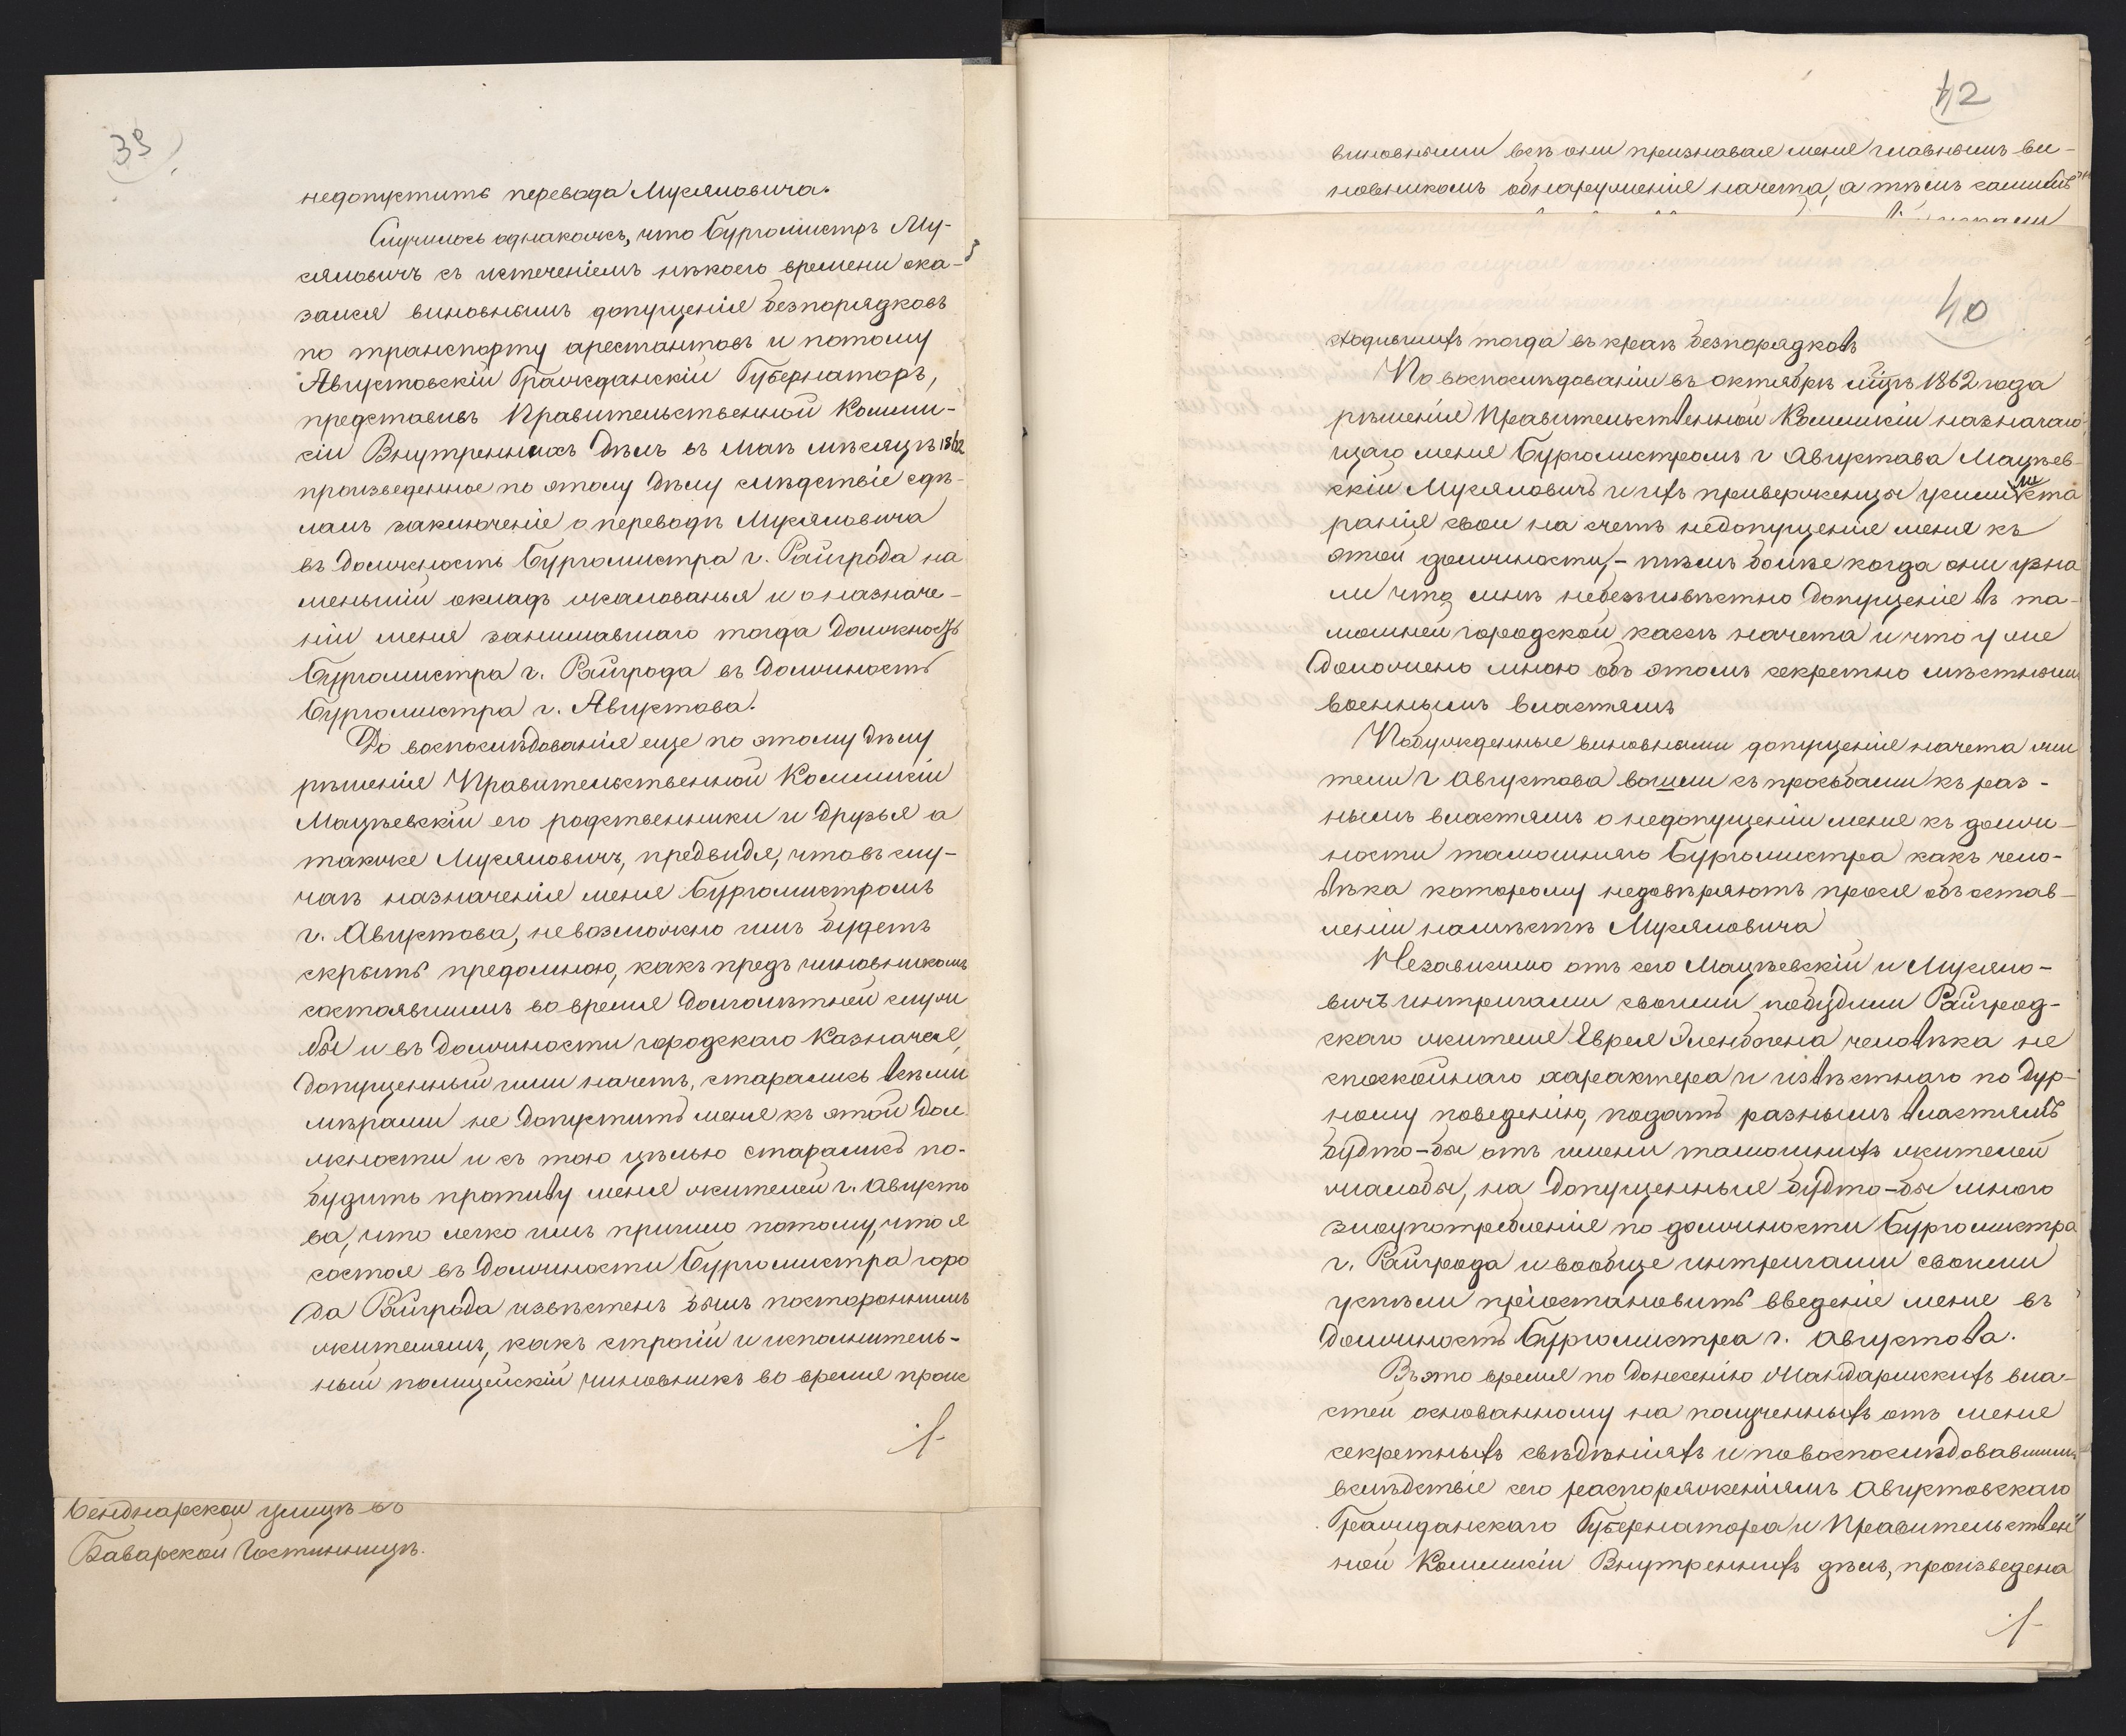 39
недопустить перевода Мусяловича.
Случилось однакожъ, что Бургомистръ Му-
сяловичъ съ истеченіемъ нѣкоего времени ока-
зался виновнымъ допущенія безпорядковъ
по транспорту арестантовъ и потому
Августовскій Гражданскій Губернаторъ,
представивъ Правительственной Комми-
сіи Внутреннихъ Дѣлъ въ Маѣ мѣсяцѣ 1862
произведенное по этому дѣлу слѣдствіе сдѣ-
лалъ заключеніе о переводѣ Мусяловича
въ должность Бургомистра г. Райгрода на
меньшій окладъ жалованья и о назначе-
ніи меня занимавшаго тогда должность
Бургомистра г. Райгрода въ должность
Бургомистра г. Августова.
До воспослѣдованія еще по этому дѣлу
рѣшенія Правительственной Коммисіи
Мацѣевскій его родственники и друзья а
также Мусяловичъ, предвидя, что въ слу-
чаѣ назначенія меня Бургомистромъ
г. Августова, невозможно имъ будетъ
скрыть предомною, какъ предъ чиновникомъ
состоявшимъ во время долголѣтней служ
бы и въ должности городскаго Казначея,
допущенный ими начетъ, старались всѣми
мѣрами не допустить меня къ этой дол
жности и съ тою цѣлью старались по-
будить противу меня жителей г. Августо
ва, что легко имъ пришло потому, что я
состоя въ должности Бургомистра горо
да Райгрода извѣстенъ былъ постороннимъ
жителямъ, какъ строгій и исполнитель-
ный полицейскій чиновникъ во время проис
./.
Бенднарской улицѣ въ
Баварской Гостинницѣ.
42
виновными всѣ они признавая меня главнымъ ви-
новникомъ обнаруженія начета, а тѣмъ самимъ
40
ходившихъ тогда въ краѣ безпорядковъ
По воспослѣдованіи въ октябрѣ мцѣ 1862 года
рѣшенія Правительственной Коммисіи назначаю
щаго меня Бургомистромъ г Августова Мацѣев-
скій Мусяловичъ и ихъ приверженцы усилили ста
ранія свои на счетъ недопущенія меня къ
этой должности, - тѣмъ болѣе когда они узна
ли что мнѣ небезъизвѣстно допущеніе въ та-
мошней городской кассѣ начета и что уже
доложено мною объ этомъ секретно мѣстнымъ
военнымъ властямъ
Побужденные виновными допущенія начета жи
тели г Августова вошли съ просьбами къ раз-
нымъ властямъ о недопущеніи меня къ долж-
ности тамошняго Бургомистра какъ чело-
вѣка которому недовѣряютъ прося объ остав-
леніи намѣстѣ Мусяловича
Независимо отъ сего Мацѣевскій и Мусяло-
вичъ интригами своими побудили Райгрод-
скаго жителя Еврея Эленбогена человѣка не
спокойнаго характера и извѣстнаго по дур-
ному поведенію, подать разнымъ властямъ
будто-бы отъ имени тамошнихъ жителей
жалобы, на допущенныя будто-бы мною
злоупотребленія по должности Бургомистра
г. Райгрода и вообще интригами своими
успѣли пріостановить введеніе меня въ
должность Бургомистра г. Августова.
Въ это время по донесенію Жандармскихъ вла-
стей основанному на полученныхъ отъ меня
секретныхъ свѣдѣніяхъ и повоспослѣдовавшимъ
вслѣдствіе сего распоряженіямъ Августовскаго
Гражданскаго Губернатора и Правительствен
ной Коммисіи Внутреннихъ дѣлъ, произведена
./.